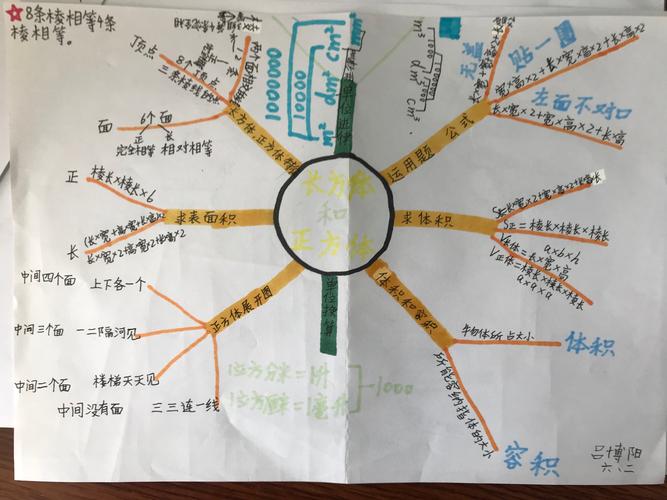 8条棱相等4条
棱相等。
顶点
8个顶点
面
6个面
正 长
完全相等 相对相等
长方体 正方体特
1000000
10000
m² dm² cm²
m³
1000
dm³
1000
cm³
运用题 公式
无盖
贴一圈
宽×高×2+长×高×2
左面不对口
长×宽×2+宽×高×2+长×高
长方体
和
正方体
求表面积
正
棱长×棱长×6
长
长×宽×2+宽×高×2+长×高×2
求体积
S正=棱长×棱长×棱长
a×b×h
V长体=长×宽×高
V正体=棱长×棱长×棱长
a×a×a
正方体展开图
中间四个面 上下各一个
中间三个面 一二隔河见
中间二个面 楼梯天天见
中间没有面 三三连一线
单位换算
1立方分米=1升
1立方厘米=1毫升
1000
体积和容积
物体所占大小
体积
所能容纳指体的大小
容积
吕博阳
六、二